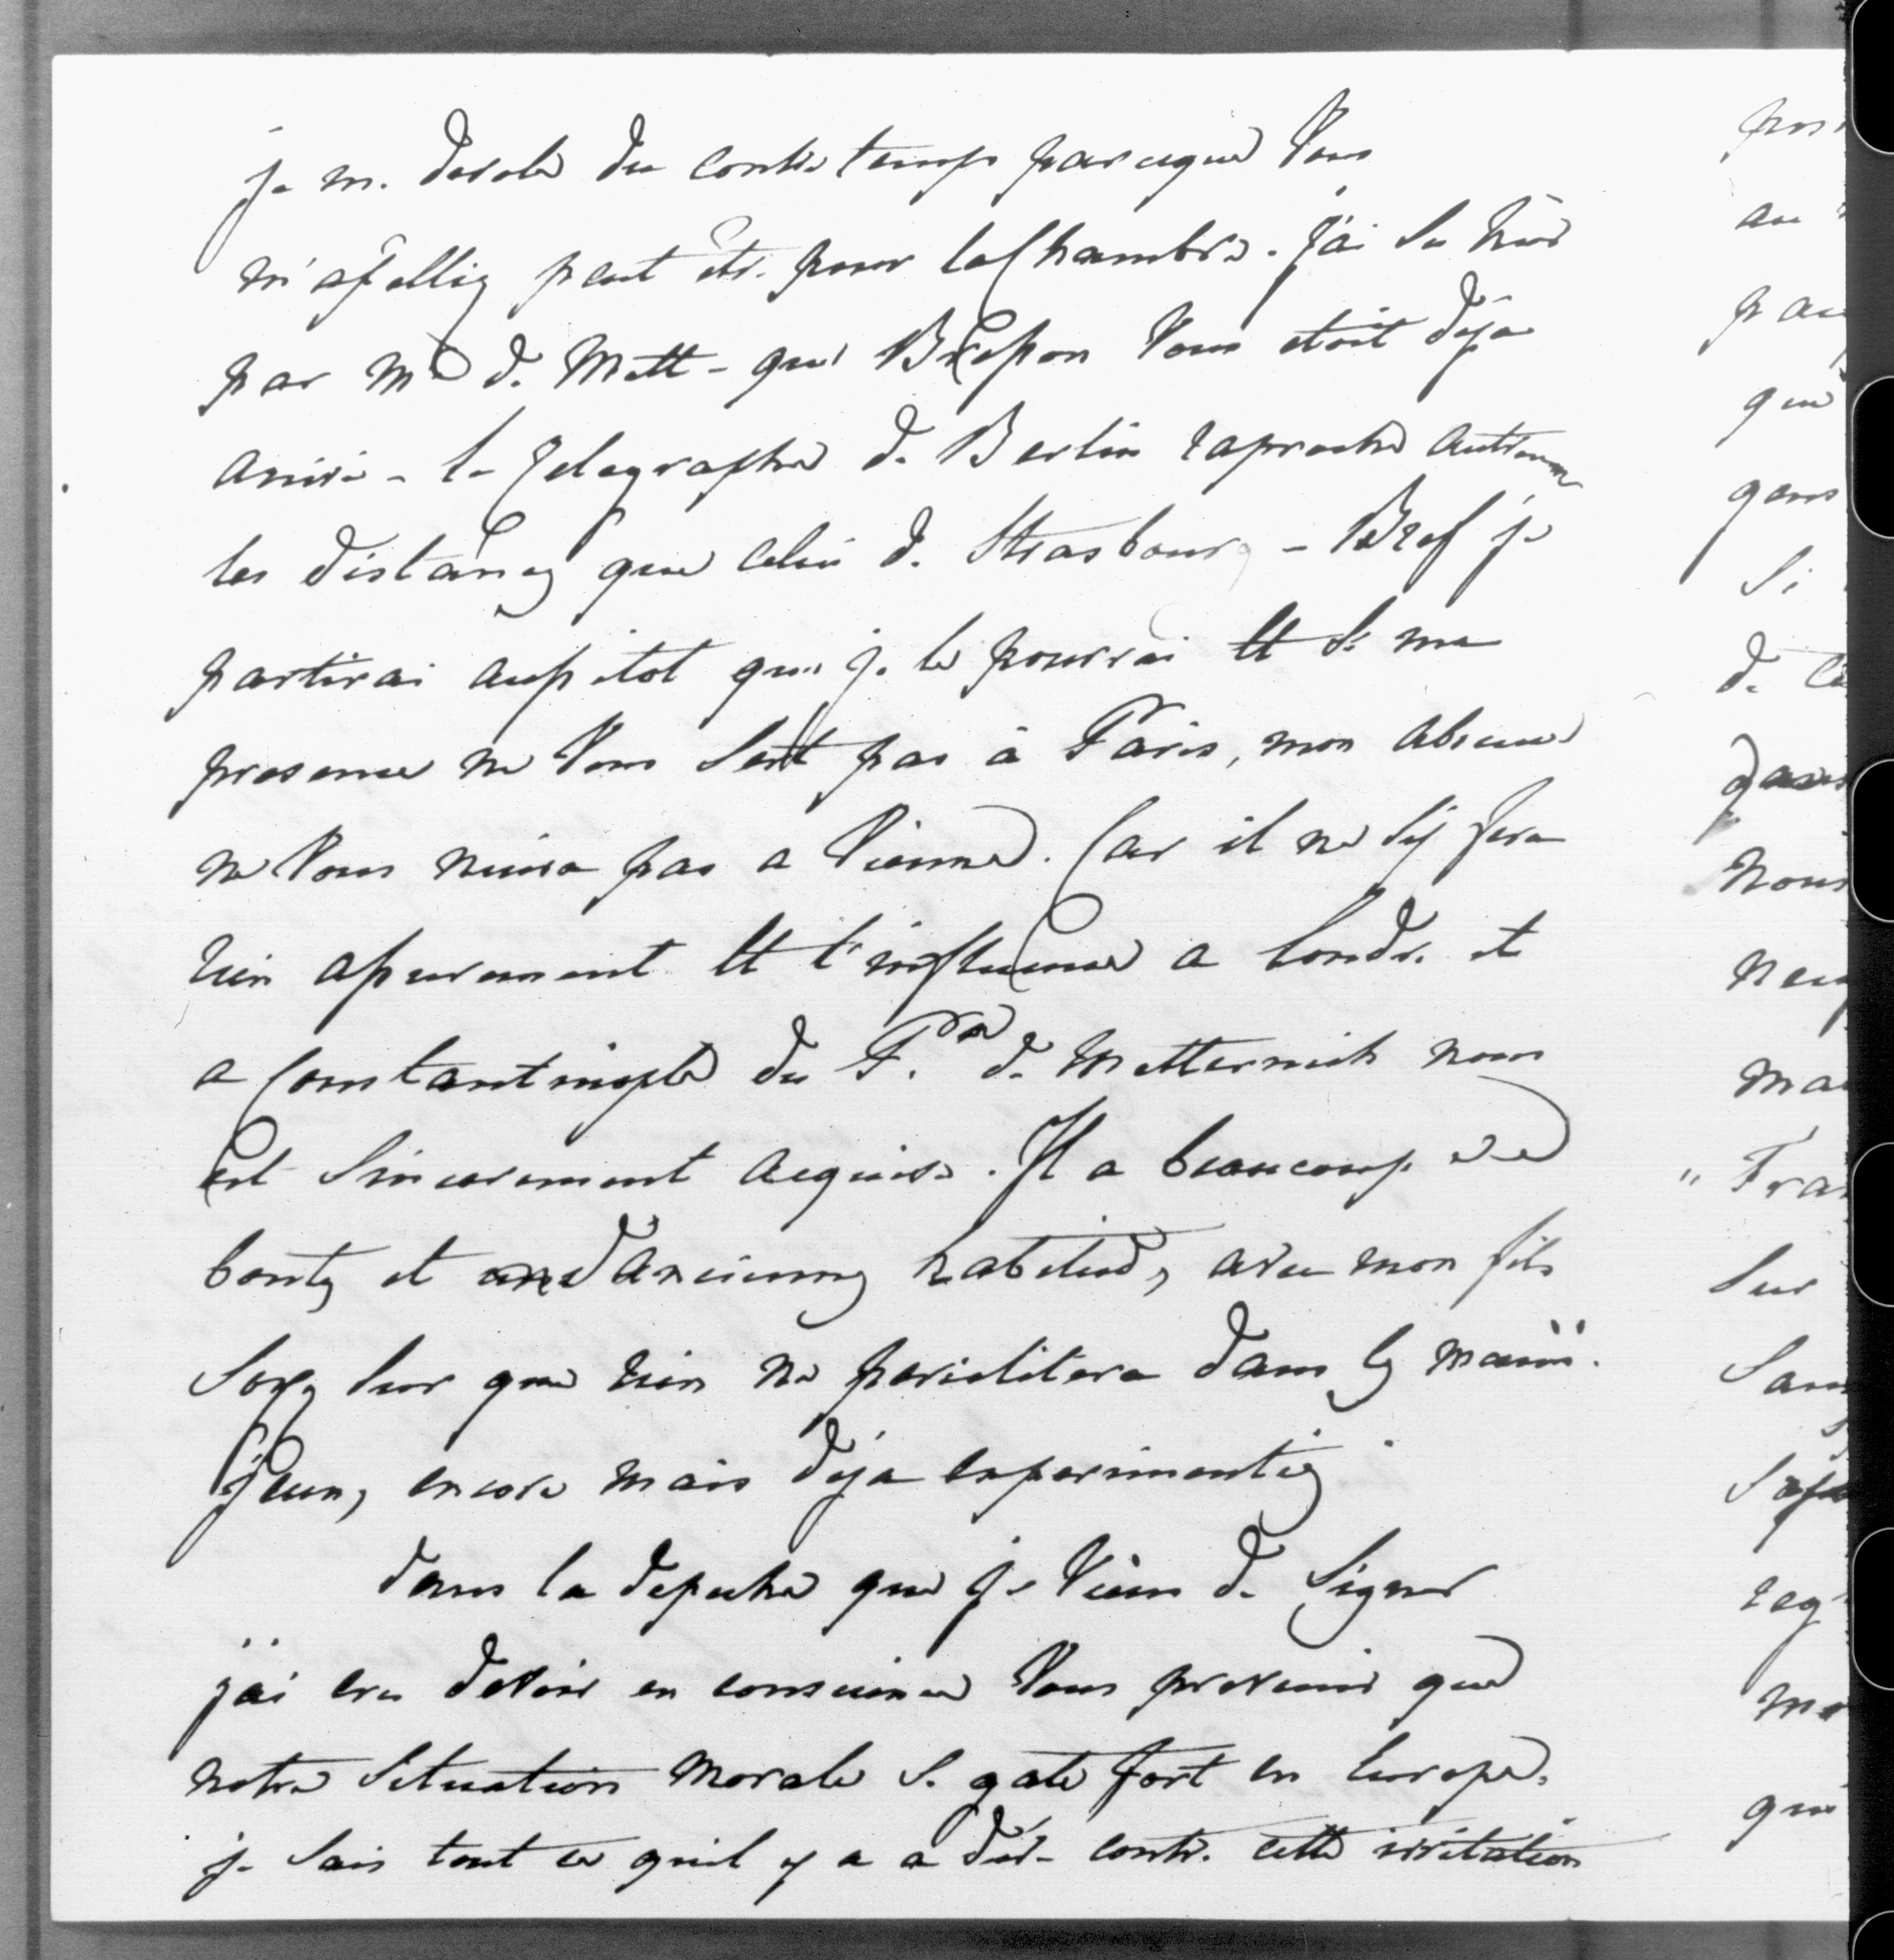 je me desole du contretemps parceque Vous
m'apelliez peut etre pour la Chambre. J'ai su hier
par Md de Mett - que Bresson Vous etoit déja
arrivé - le Telegraphe de Berlin raproche autrement
les distances que celui de Strasbourg - Bref je
partirai aussitot que je le pourrai et si ma
presence ne Vous sert pas à Paris, mon absence
ne Vous nuira pas a Vienne. Car il ne s'y fera
rien assurement et l'influence a Londres et
a Constantinople du P.ce de Metternich nous
est sincerement acquise. Il a beaucoup de
bontes et d'anciennes habitudes, avec mon fils
Soyez sur que rien ne periclitera dans les mains
jeunes, encore mais déja experimentées
dans la depeche que je viens de signer
j'ai cru devoir en conscience Vous prevenir que
notre situation morale se gate fort en Europe.
je sais tout ce qu'il y a a dire contre cette irritation